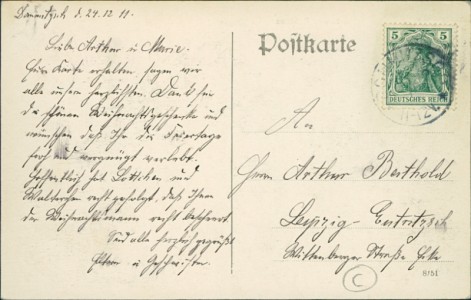 d. 24.12.11.
Liebe Arthur u. Marie.
Eure Karte erhalten, sagen wir
alle unsern herzlichsten Dank für
die schönen Weihnachtsgeschenke und
wünschen daß Ihr die Feiertage
froh und vergnügt verlebt.
Hoffentlich hat Lottchen und
recht gefolgt, daß Ihnen
der Weihnachtsmann recht bescheert
Seid alle herzlich gegrüßt
Eltern u Geschwister.
Postkarte
5 5
DEUTSCHES REICH
An
Herrn Arthur Berthold
Leipzig-Eutritzsch
Wittenberger Straße Ecke
C
8/51